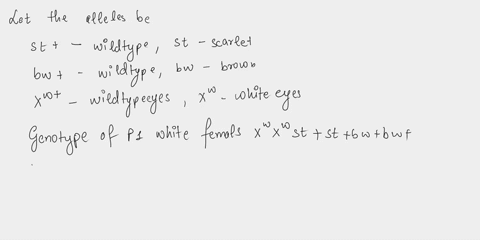 Let the alleles be
st+ - wildtype, st - scarlet
bw+ - wildtype, bw - brown
X^w+ - wildtypeeyes, X^w - white eyes
Genotype of P1 white femals X^w X^w st+st+bw+bw+